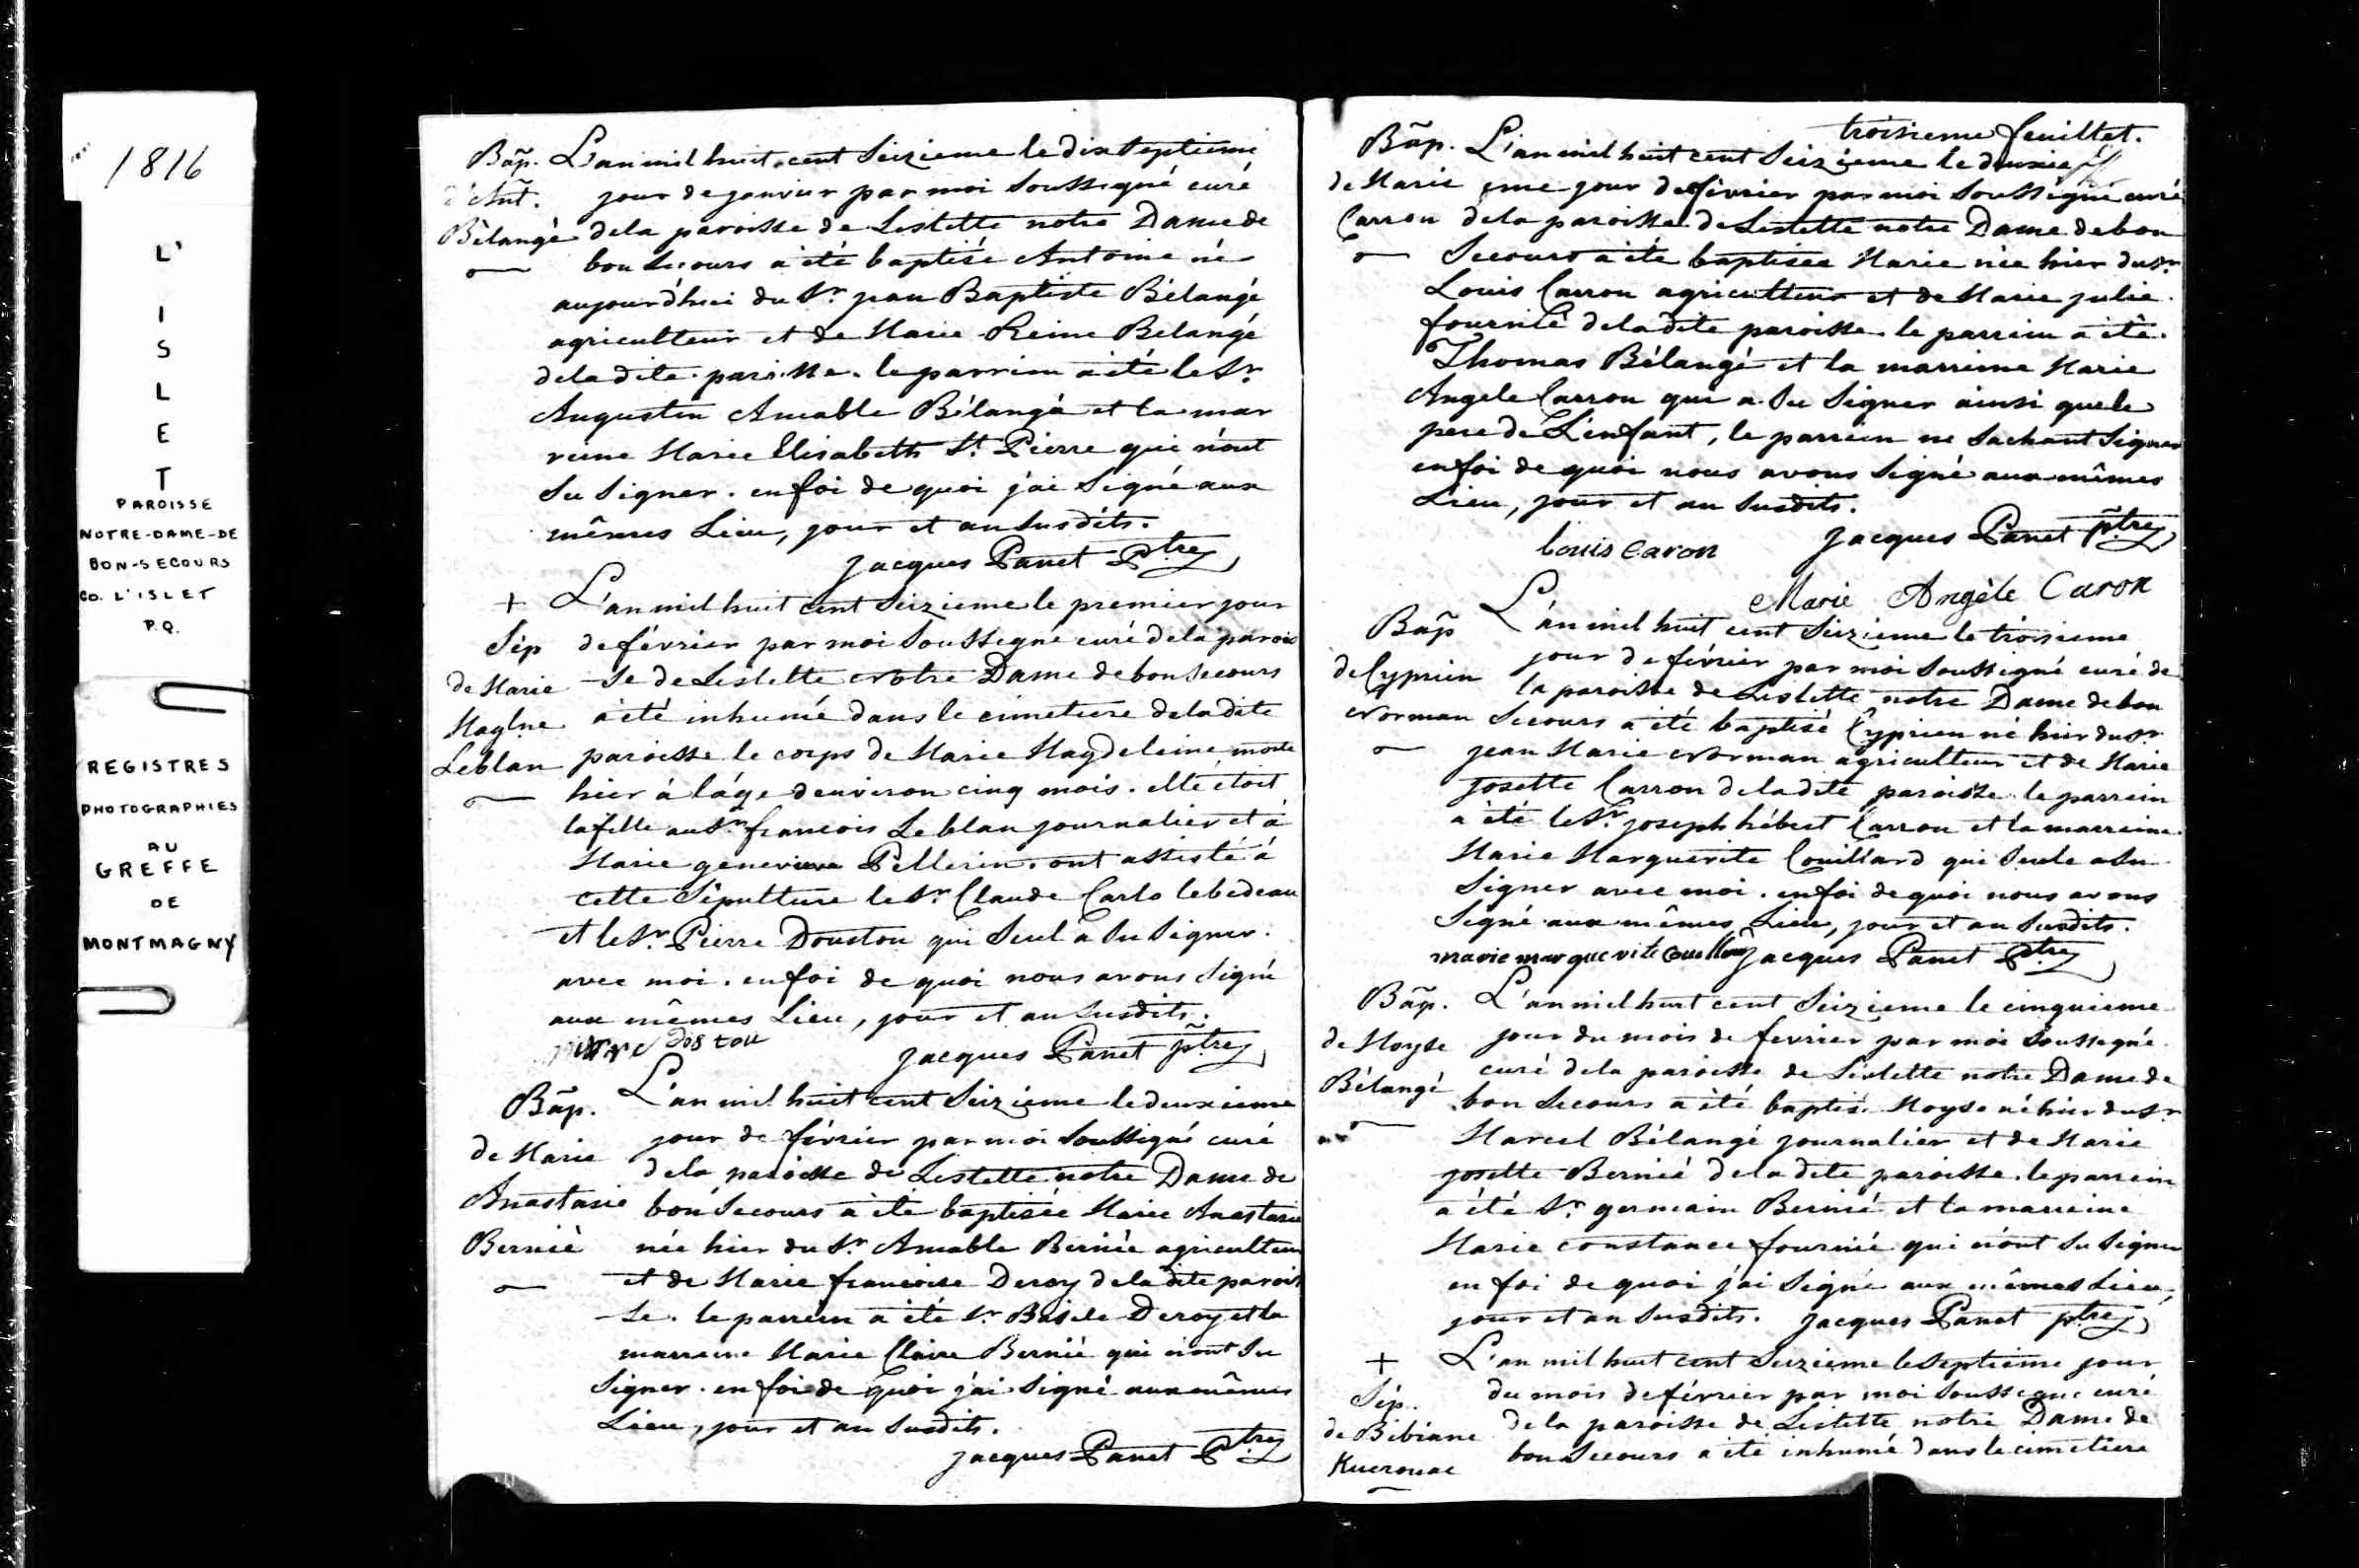 1816
L'
I
S
L
E
T
PAROISSE
NOTRE-DAME-DE
BON-SECOURS
CO. L'ISLET
P.Q.
REGISTRES
PHOTOGRAPHIES
AU
GREFFE
DE
MONTMAGNY
Bap. L'an mil huit cent Seizieme le dix Septieme
d'Ant. jour de janvier par moi Soussigné curé
Bélangé de la paroisse de Lislette notre Dame de
bon Secours a été baptisé Antoine né
aujourd'hui du Sr. jean Baptiste Bélangé
agriculteur et de Marie Reine Bélangé
de la dite paroisse. le parrein a été le Sr.
Augustin Amable Bélangé et la mar
reine Marie Elisabeth St. Pierre qui n'ont
Su Signer. en foi de quoi j'ai Signé aux
mêmes Lieu, jour et an Susdits.
jacques Panet Ptre
+ L'an mil huit cent Seizieme le premier jour
Sép de février par moi Soussigné curé de la parois
de Marie -se de Lislette Notre Dame de bon Secours
Maglne a été inhumé dans le cimetiere de la dite
Leblan paroisse le corps de Marie Magdeleine morte
hier à l'âge d'environ cinq mois. elle étoit
la fille au Sr. francois Leblan journalier et à
Marie genevieve Pellerin. ont assisté à
cette Sépulture le Sr. Claude Carlo le bedeau
et le Sr. Pierre Douston qui Seul a Su Signer.
avec moi. en foi de quoi nous avons Signé
aux mêmes Lieu, jour et an Susdits.
jacques Panet ptre
Bap. L'an mil huit cent Seizieme le deuxieme
jour de février par moi Soussigné curé
de Marie de la paroisse de Lislette notre Dame de
Anastasie bon Secours a été baptisée Marie Anastasie
Bernié née hier du Sr. Amable Bernié agriculteur
et de Marie francoise Deroy de la dite parois
-se. le parrein a été Sr. Basile Deroy et la
marreine Marie Claire Bernié qui n'ont Su
Signer. en foi de quoi j'ai Signé aux mêmes
Lieu, jour et an Susdits.
jacques Panet Ptre
troisieme feuillet.
Bap. L'an mil huit cent Seizieme le deuxie
de Marie eme jour de février par moi Soussigné curé
Carron de la paroisse de Lislette notre Dame de bon
Secours a été baptisée Marie née hier du Sr
Louis Carron agriculteur et de Marie julie
fournié de la dite paroisse. le parrein a été.
Thomas Bélangé et la marreine Marie
Angele Carron qui a Su Signer ainsi que le
pere de L'enfant, le parrein ne Sachant Signer
en foi de quoi nous avons Signé aux mêmes
Lieu, jour et an Susdits.
Louis Caron jacques Panet ptre
Marie Angèle Caron
Bap L'an mil huit cent Seizieme le troisieme
jour de février par moi Soussigné curé de
de Cyprien la paroisse de Lislette notre Dame de bon
Norman Secours a été baptisé Cyprien né hier du Sr
jean Marie Norman agriculteur et de Marie
josette Carron de la dite paroisse. le parrein
a été le Sr. joseph hébert Carron et la marreine
Marie Marguerite Couillard qui Seule a Su
Signer avec moi. en foi de quoi nous avons
Signé aux mêmes Lieu, jour et an Susdits.
marie marguerite jacques Panet Ptre
Bap. L'an mil huit cent Seizieme le cinquieme
de Moyse jour du mois de fevrier par moi Soussigné
curé de la paroisse de Lislette notre Dame de
Bélangé bon Secours a été baptisé Moyse né hier du Sr
Marcel Bélangé journalier et de Marie
josette Bernié de la dite paroisse. le parrein
a été Sr. germain Bernié et la marreine
Marie constance fournié qui n'ont Su Signer
en foi de quoi j'ai Signé aux mêmes Lieu,
jour et an Susdits. jacques Panet ptre
+ L'an mil huit cent Seizieme le Septieme jour
Sép. du mois de février par moi Soussigné curé
de Bibiane de la paroisse de Lislette notre Dame de
Kuerouac bon Secours a été inhumé dans le cimetiere